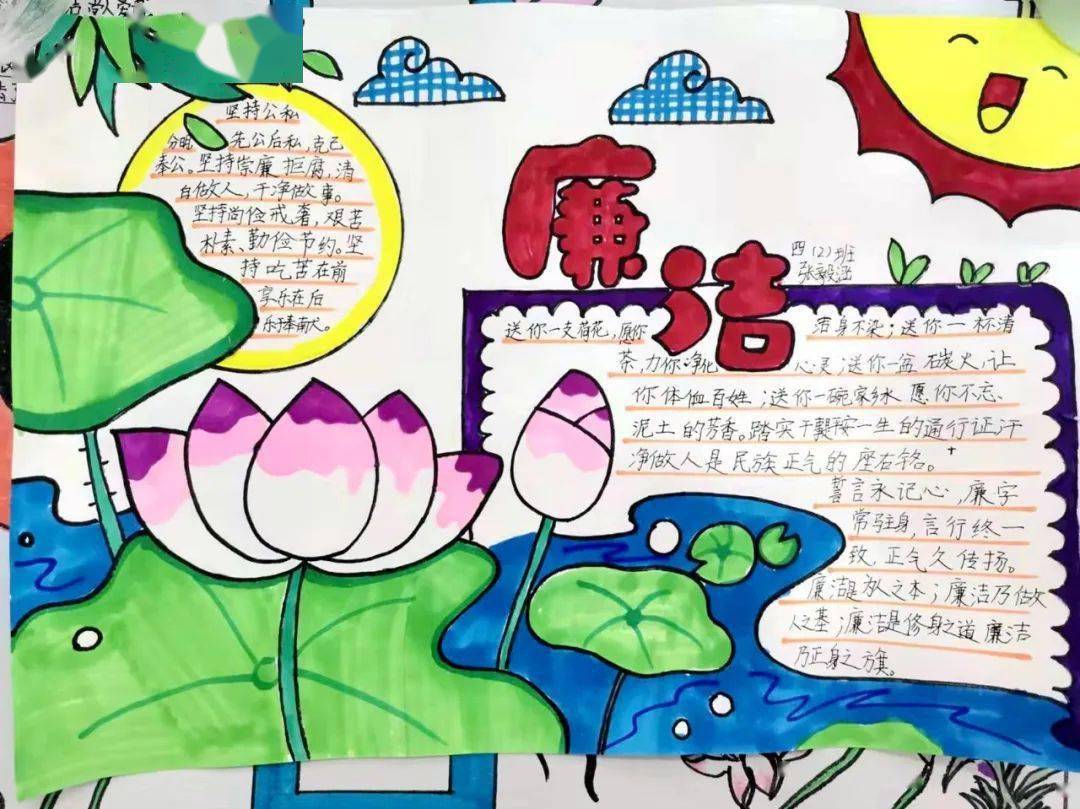 坚持公私
分明 先公后私,克己
奉公。坚持崇廉拒腐,清
白做人,干净做事。
坚持尚俭戒奢,艰苦
朴素、勤俭节约。坚
持吃苦在前
享乐在后
廉洁
四(2)班
张毅涵
送你一支荷花,愿你 洁身不染;送你一杯清
茶,力你净化 心灵;送你一盆碳火,让
你体恤百姓;送你一碗家乡水 愿你不忘、
泥土的芳香。踏实干 一生的通行证汗
净做人是民族正气的座右铭。
誓言永记心,廉字
常驻身,言行终一
致,正气久传扬。
廉洁是 之本;廉洁乃做
人之基;廉洁是修身之道 廉洁
乃正身之旗。